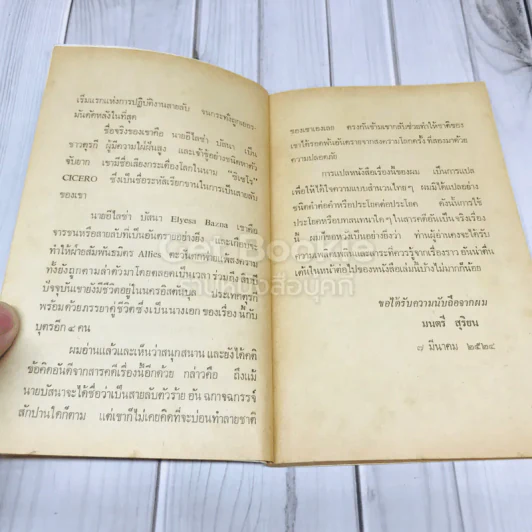 เริ่มแรกแห่งการปฏิบัติงานสายลับ จนกระทั่งถูกเยอร-
มันตัดหลังในที่สุด
ชื่อจริงของเขาคือ นายอีไลซ่า บัสนา เป็น
ชาวตุรกี ผู้มีความใฝ่ฝันสูง และเจ้าชู้อย่างชนิดหาตัว
จับยาก เขามีชื่อเสียงกระเดื่องโลกในนาม "ซิเซโร"
CICERO ซึ่งเป็นชื่อรหัสเรียกขานในการเป็นสายลับ
ของเขา
นายอีไลซ่า บัสนา Elyesa Bazna เขาคือ
จารชนหรือสายลับที่เป็นอันตรายอย่างยิ่ง และเกือบจะ
ทำให้ฝ่ายสัมพันธมิตร Allies
ทั้งยังถูกตามล่าตัวมาโดยตลอดเป็นเวลา
ปัจจุบันเขายังมีชีวิตอยู่ในนครอิสตันบูล ประเทศตุรกี
พร้อมด้วยภรรยาคู่ชีวิตซึ่งเป็นนางเอกของเรื่องนี้กับ
บุตรอีก ๔ คน
ผมอ่านแล้วและเห็นว่าสนุกสนาน และยังได้คติ
ข้อคิดอันดีจากสารคดีเรื่องนี้อีกด้วย กล่าวคือ ถึงแม้
นายบัสนาจะได้ชื่อว่าเป็นสายลับตัวร้าย อันฉกาจฉกรรจ์
สักปานใดก็ตาม แต่เขาก็ไม่เคยคิดที่จะบ่อนทำลายชาติ
ของเขาเองเลย ตรงกันข้ามเขากลับช่วยทำให้ชาติของ
เขาได้รอดพ้นอันตรายจากสงครามโลกครั้งที่สองมาด้วย
ความปลอดภัย
การแปลหนังสือเรื่องนี้ของผม เป็นการแปล
เพื่อให้ได้ใจความแบบสำนวนไทยๆ ผมมิได้แปลอย่าง
ชนิดคำต่อคำหรือประโยคต่อประโยค ดังนั้นการใช้
ประโยคหรือบทสนทนาใดๆ ในสารคดีอันเป็นจริงเรื่อง
นี้ ผมก็ขอหวังเป็นอย่างยิ่งว่า ท่านผู้อ่านคงจะได้รับ
ความเพลิดเพลิน และกระหายที่จะใคร่ติดตามเรื่องราว อันน่าตื่น
เต้นในหน้าต่อไปของหนังสือเล่มนี้บ้างไม่มากก็น้อย
ขอได้รับความนับถือจากผม
มนตรี สุริยน
๗ มีนาคม ๒๕๒๔
Get Bookie
ร้านหนังสือบุ๊คกี้